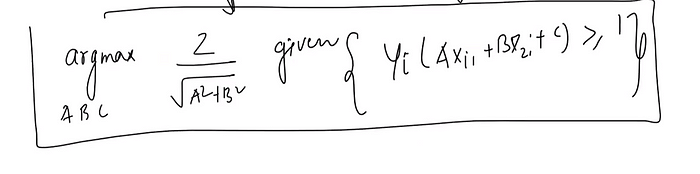 argmax 2/√A²+B² given { yi (Axi1 + Bx2i + c) ≥ 1 }
A B C